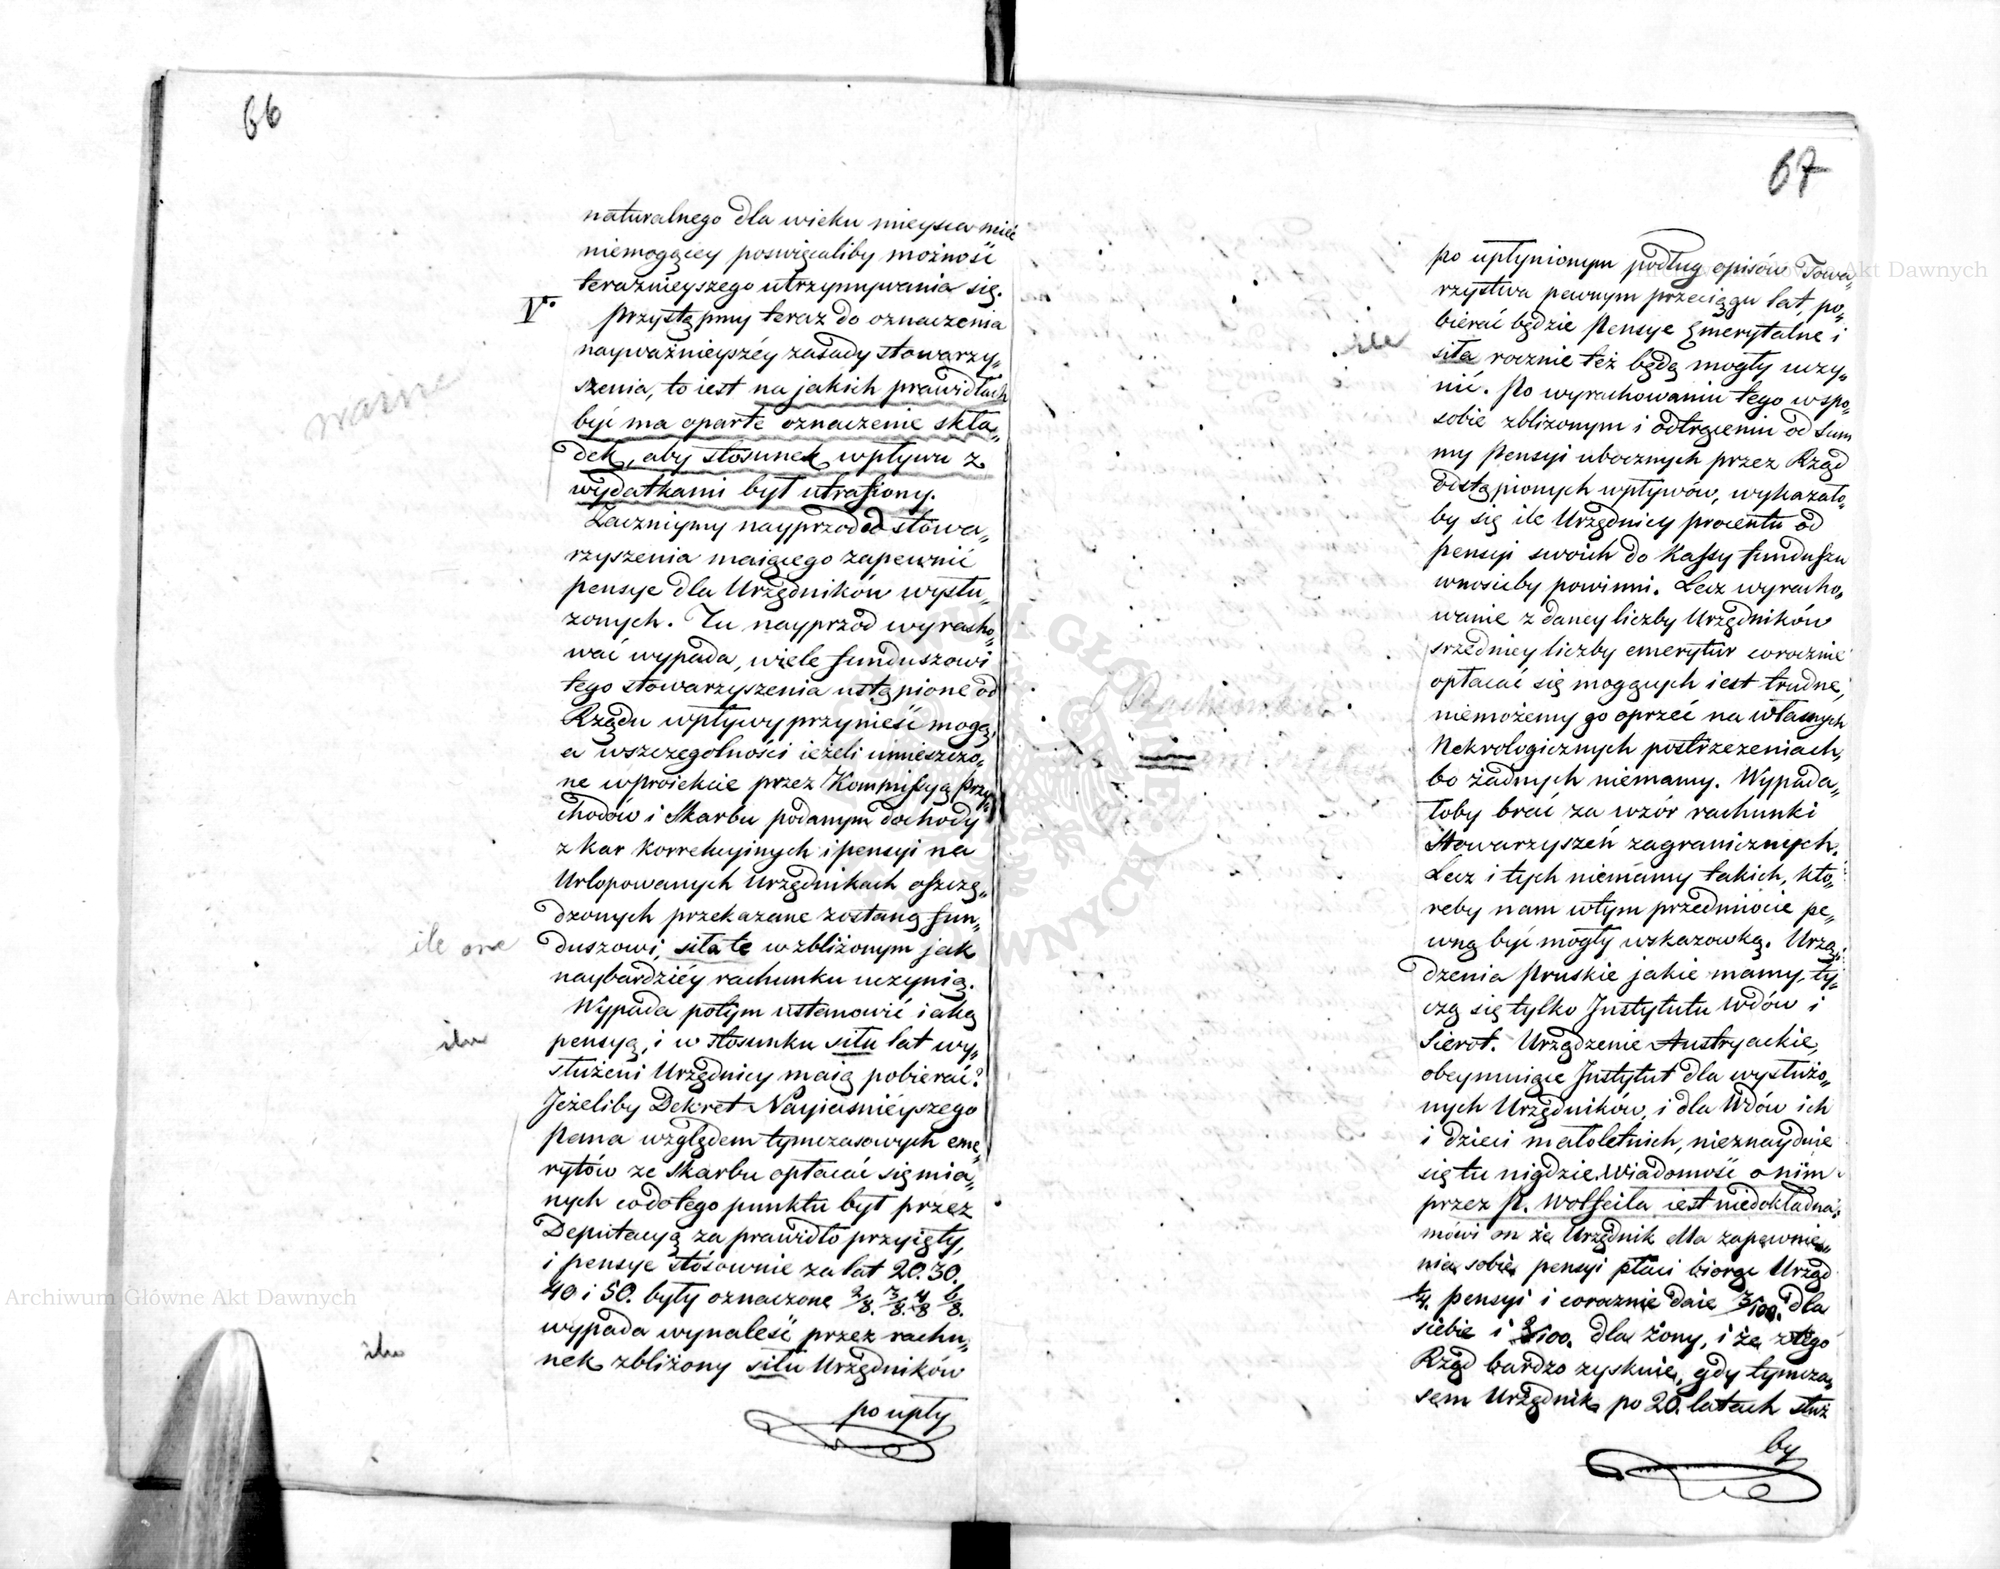 66
naturalnego dla wieku mieysca mieć
niemogącey poswięcaliby możność
teraznieyszego utrzymywania się.
V° Przystąpmy teraz do oznaczenia
nayważnieyszéy zasady stowarzy„
szenia, to iest na jakich prawidłach
ważne
być ma oparte oznaczenie skła„
dek, aby stosunek wpływu z
wydatkami był utrafiony.
Zacznijmy nayprzód od stowa„
rzyszenia maiącego zapewnić
pensye dla Urzędników wysłu„
żonych. Tu nayprzód wyracho„
wać wypada, wiele funduszowi
tego stowarzyszenia ustąpione od
Rządu wpływy przynieść mogą,
a wszczególności ieżeli umieszczo„
ne wproiekcie przez Kommissyą Przy„
chodów i Skarbu podanym dochody
z kar korrekcyinych i pensyi na
Urlopowanych Urzędnikach oszczę„
dzonych przekazane zostaną fun„
ile one
duszowi, siła te w zbliżonym jak
naybardziéy rachunku uczynią.
Wypada potym ustanowić iaką
ilu
pensyą, i w stosunku siłu lat wy„
służeni Urzędnicy maią pobierać?
Jeżeliby Dekret Nayiaśniéyszego
Pana względem tymczasowych eme„
rytów ze Skarbu opłacać się mia„
nych codotego punktu był przez
Deputacyą za prawidło przyięty,
i pensye stósownie za lat 20. 30.
40 i 50. były oznaczone 2/8. 3/8. 4/8 6/8.
wypada wynaleść przez rachu„
ilu
nek zbliżony siłu Urzędników
po upły
67
po upłynionym podług opisów Towa„
rzystwa pewnym przeciągu lat, po„
bierać będzie pensye Emerytalne i
ile
siła rocznie też będą mogły uczy„
nić. Po wyrachowaniu tego wspo„
sobie zbliżonym i odtrąceniu od Sum
my pensyi ubocznych przez Rząd
odstąpionych wpływów, wykazało„
by się ile Urzędnicy procentu od
pensyi swoich do Kassy funduszu
wnosićby powinni. Lecz wyracho„
wanie z daney liczby Urzędników
srzedniey liczby emerytur corocznie
opłacać się mogących iest trudne,
niemożemy go oprzeć na własnych
Nekrologicznych postrzeżeniach,
bo żadnych niemamy. Wypada„
łoby brać za wzór rachunki
Stowarzyszeń zagranicznych.
Lecz i tych niemamy takich, któ„
reby nam wtym przedmiocie pe„
wną być mogły wskazówką. Urzą„
dzenia Pruskie jakie mamy, ty„
czą się tylko Instytutu Wdów i
Sierot. Urządzenie Austryackie,
obeymuiące Instytut dla wysłużo„
nych Urzędników, i dla Wdów ich
i dzieci małoletnich, nieznayduie
się tu nigdzie. Wiadomość o nim
przez P. Wolfeila iest niedokładna,
mówi on że Urzędnik dla zapewnie„
nia sobie pensyi płaci biorąc Urząd
1/4. pensyi i corocznie daie 3/100. dla
siebie i 3/100. dla żony, i że ztego
Rząd bardzo zyskuie, gdy tymcza„
sem Urzędnik po 20. latach służ
by
Archiwum Główne Akt Dawnych
Archiwum Główne Akt Dawnych